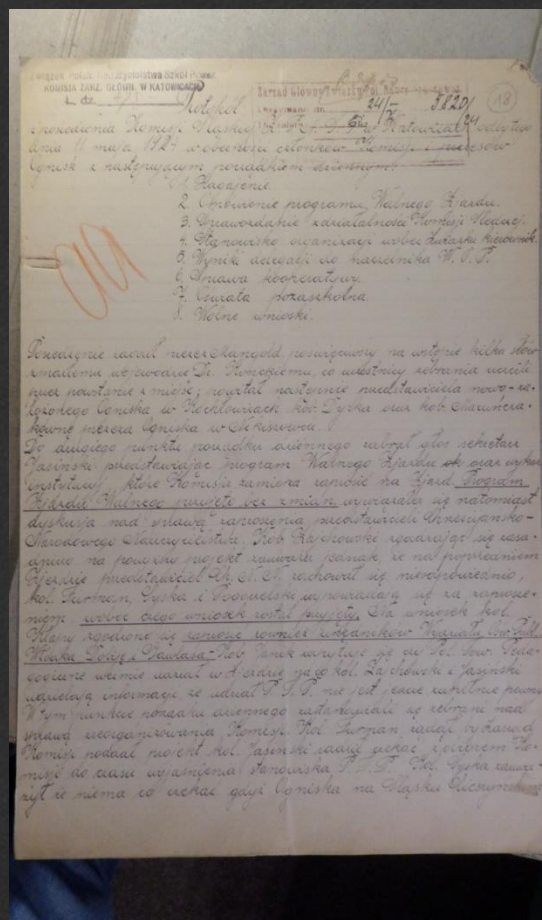 Związek Polsk. Nauczycielstwa Szkół Powsz.
KOMISJA ZARZ. GŁÓWN. W KATOWICACH
L. dz.
Zarząd Główny
24/V 5820/24
18
Protokół
z posiedzenia Komisji Śląskiej w Katowicach odbytego
dnia 11 maja 1924 w obecności członków Komisji i prezesów
Ognisk z następującym porządkiem dziennym:
1. Zagajenie.
2. Omówienie programu Walnego Zjazdu.
3. Sprawozdanie z działalności Komisji
4. Stanowisko organizacji wobec Związku kierownik.
5. Wyniki delegacji do naczelnika W. O. P.
6. Sprawa kooperatywy.
7. Oświata pozaszkolna.
8. Wolne wnioski.
Posiedzenie zagaił prezes Mangold, poświęciwszy na wstępie kilka słów
zmarłemu wojewodzie Dr. Końckiemu, co uczestnicy zebrania uczcili
przez powstanie z miejsc; powitał następnie przedstawiciela nowo-za-
łożonego Ogniska w Kochłowicach, kol. Łyska oraz kol.
prezesa Ogniska w
Do drugiego punktu porządku dziennego zabrał głos sekretarz
Jasiński przedstawiając program Walnego Zjazdu oraz wykaz
instytucyj, które Komisja zamierza zaprosić na Zjazd. Program
Zjazdu Walnego przyjęto bez zmian, wywiązała się natomiast
dyskusja nad sprawą zaproszenia przedstawicieli Chrześcijańsko-
Narodowego Nauczycielstwa. Kol. Zajchowski zgadzając się zasa-
dniczo na powyższy projekt zauważa jednak, że na poprzednim
Zjeździe przedstawiciel Ch. N. N. zachował się nieodpowiednio,
kol. Furman, Łyska i wypowiadają się za zaprosze-
niem, wobec czego wniosek został przyjęty. Na wniosek kol.
zgodzono się zaprosić również urzędników Wydziału Ośw. Publ.
Kol. Panek zapytuje się czy Pol. Tow. Peda-
gogiczne weźmie udział w Zjeździe na co kol. Zajchowski i Jasiński
udzielają informacji że udział P. T. P. nie jest jeszcze zupełnie pewny.
W tym punkcie porządku dziennego zastanawiali się zebrani nad
sprawą zreorganizowania Komisji. Kol. Furman żądał by Zarząd
Komisji podał projekt, kol. Jasiński radzi czekać z wyborem Ko-
misji do czasu wyjaśnienia stanowiska P. T. P. Kol. Łyska zauwa-
żył że niema co czekać gdyż Ogniska na Śląsku Cieszyńskim